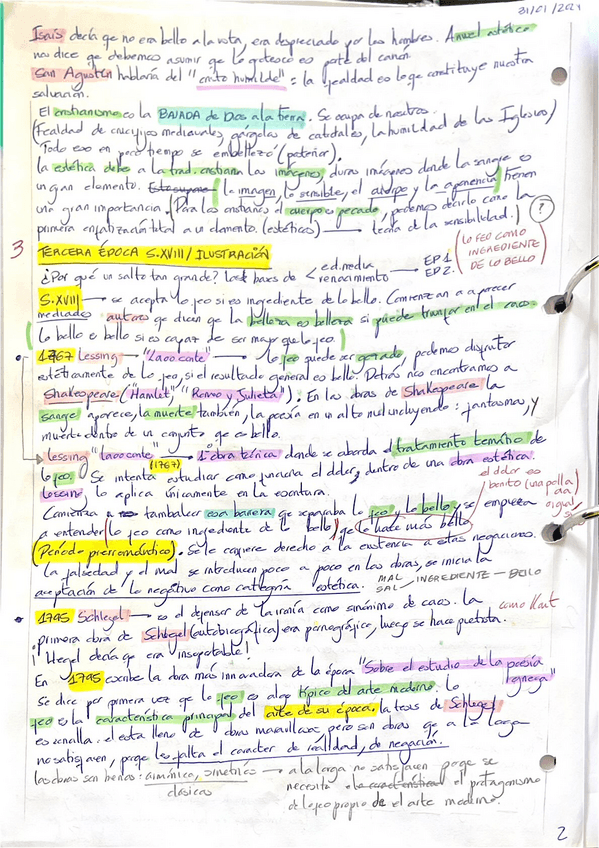 31/01/2024
Isaís decía que no era bello a la vista, era despreciado por los hombres. Anuel estético
nos dice que debemos asumir que lo grotesco es parte del canon.
San Agustín hablaría del "cristo humilde": la fealdad es lo que constituye nuestra
salvación.
El cristianismo es la BAJADA de Dios a la tierra. Se ocupa de nosotros.
(Fealdad de crucifijos medievales, gárgolas de catedrales, la humildad de las Iglesias)
Todo eso en pero tiempo se embelleció (posterior).
la estética debe a la trad. cristiana las imágenes, duras imágenes donde la sangre es
un gran elemento. la imagen, lo sensible, el cuerpo y la apariencia tienen
una gran importancia. (Para los cristianos el cuerpo es pecado, podemos decirlo como la
primera enfatización total a un elemento. (estético) → teoría de la sensibilidad.) ?
3 TERCERA ÉPOCA S.XVIII / ILUSTRACIÓN
¿Por qué un salto tan grande? las bases de < ed. media EP 1.
renacimiento EP 2.
(LO FEO COMO
INGREDIENTE
DE LO BELLO)
S.XVIII → se acepta lo feo si es ingrediente de lo bello. Comienzan a aparecer
mediados autores que dicen que la belleza es belleza si puede triunfar en el caos.
(lo bello es bello si es capaz de ser mayor que lo feo.)
1767 Lessing → "Laoconte" → lo feo puede ser gozado, podemos disfrutar
estéticamente de lo feo, si el resultado general es bello. Detrás nos encontramos a
Shakespeare ("Hamlet", "Romeo y Julieta"). En las obras de Shakespeare la
sangre aparece, la muerte también, la poesía en un alto nivel incluyendo: fantasmas, y
muerte dentro de un conjunto que es bello.
lessing "laoconte" → 1ª obra teórica donde se aborda el tratamiento temático de
(1767)
lo feo. Se intenta estudiar como funciona el dolor, dentro de una obra estética.
lo aplica únicamente en la escritura.
el dolor es
bonito (una polla)
Comienza a tambalear esa barrera que separaba lo feo y lo bello y se empieza
a entender (lo feo como ingrediente de lo bello) que lo hace más bello
(Período prerromántico). Se le confiere derecho a la existencia a estas negaciones.
la falsedad y el mal se introducen poco a poco en las obras, se inicia la
aceptación de lo negativo como categoría estética.
MAL
SAL / INGREDIENTE — BELLO
1795 Schlegel → es el defensor de la ironía como sinónimo de caos. la como Kant
primera obra de Schlegel (autobiográfica) era pornográfica, luego se hace puetista.
¡Hegel decía que era insoportable!
En 1795 escribe la obra más innovadora de la época "Sobre el estudio de la poesía
griega"
Se dice por primera vez que lo feo es algo típico del arte moderno. lo
feo es la característica principal del arte de su época. la tesis de Schlegel
es sencilla. el está lleno de obras maravillosas, pero son obras que a la larga
no satisfacen, porque les falta el caracter de realidad, de negación.
las obras son bellas: armónicas, simétricas → a la larga no satisfacen porque se
clásicas
necesita la característica el protagonismo
de lo feo propio de el arte moderno.
2